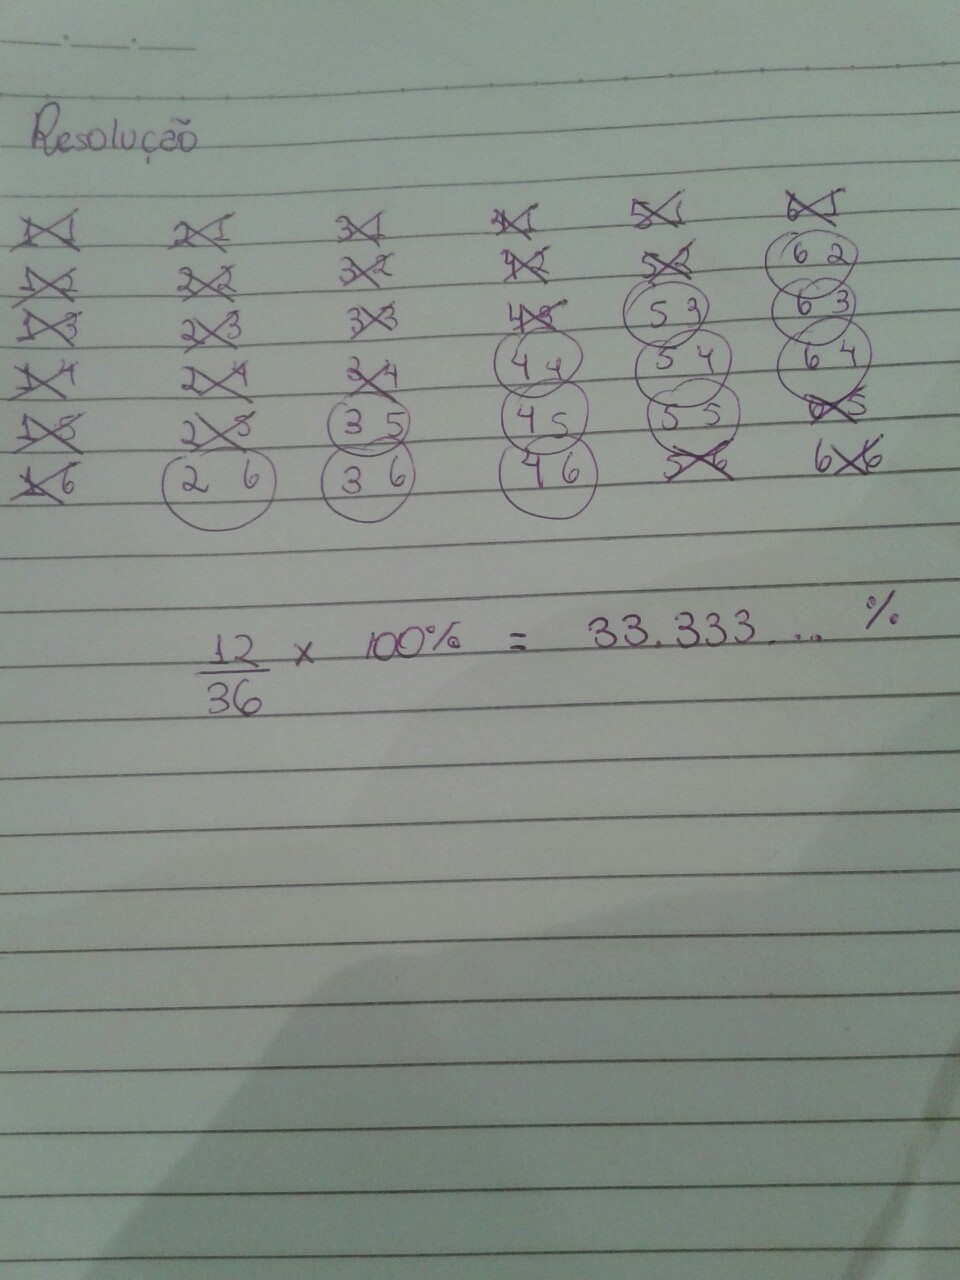 Resolução
1 1 2 1 3 1 4 1 5 1 6 1
1 2 2 2 3 2 4 2 5 2 6 2
1 3 2 3 3 3 4 3 5 3 6 3
1 4 2 4 2 4 4 4 5 4 6 4
1 5 2 5 3 5 4 5 5 5 6 5
1 6 2 6 3 6 4 6 5 6 6 6
12 x 100% = 33.333... %
36